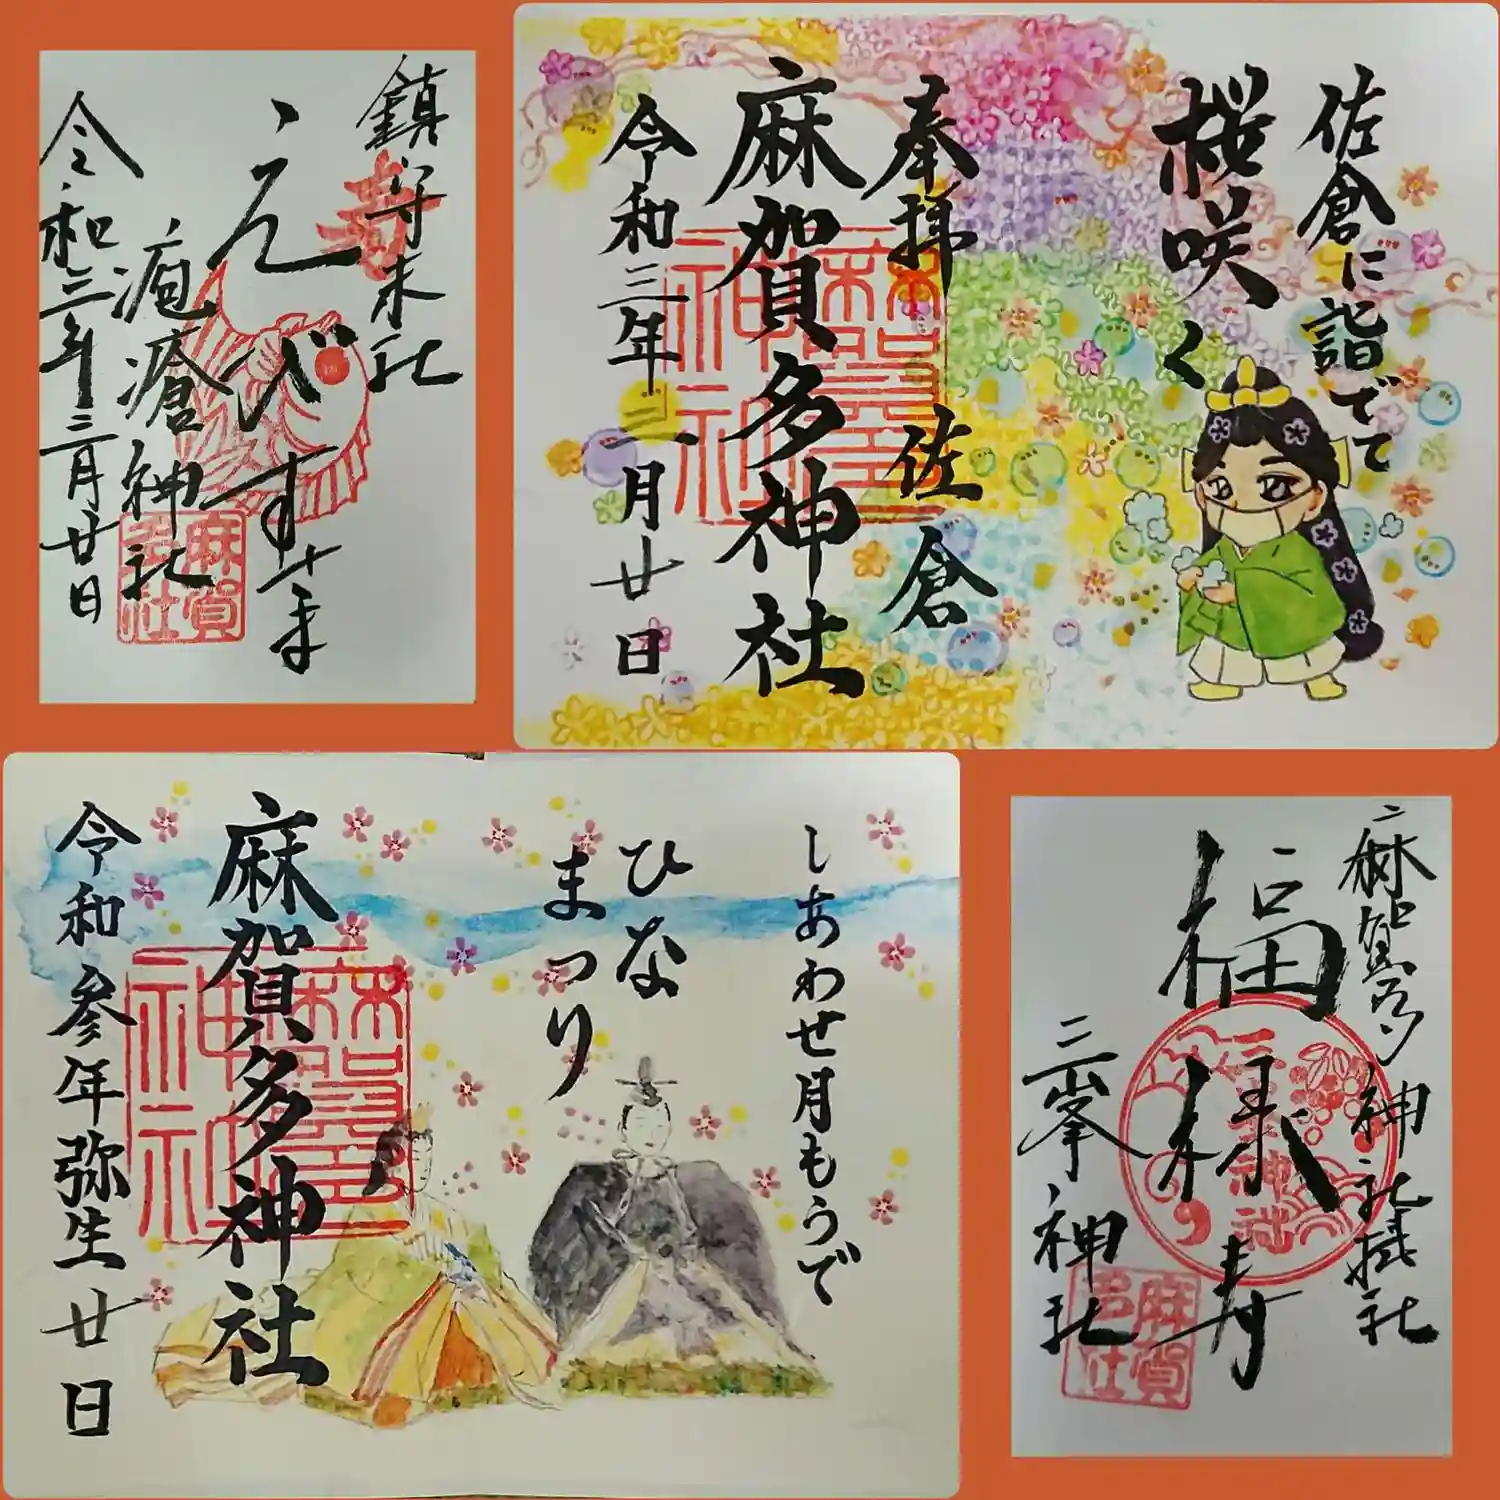 鎮守末社
えびす
疱瘡神社
令和三年三月廿日
寿
麻賀多神社
佐倉に詣でて
桜咲く
奉拝 佐倉
麻賀多神社
令和三年三月廿日
麻賀多神社
しあわせ月もうで
ひな
まつり
麻賀多神社
令和参年弥生廿日
麻賀多神社
麻賀多神社摂社
福様
寿
三峯神社
三峯神社
麻賀多社